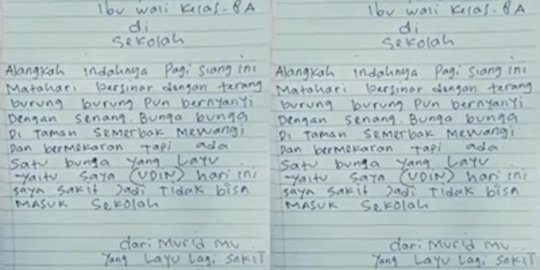 Ibu wali Kelas. 8A
di
Sekolah
Alangkah indahnya Pagi siang ini
Matahari bersinar dengan terang
burung burung Pun bernyanyi
Dengan Senang. Bunga bunga
Di Taman Semerbak Mewangi
Dan bermekaran tapi ada
Satu bunga yang Layu
-yaitu Saya (UDIN) hari ini
saya sakit Jadi Tidak bisa
MASUK Sekolah
dari Murid mu
Yang Layu Lagi SAKIT
Ibu wali Kelas. 8A
di
Sekolah
Alangkah indahnya Pagi siang ini
Matahari bersinar dengan terang
burung burung Pun bernyanyi
Dengan Senang. Bunga bunga
Di Taman Semerbak Mewangi
Dan bermekaran tapi ada
Satu bunga yang Layu
-yaitu Saya (UDIN) hari ini
saya sakit Jadi Tidak bisa
MASUK Sekolah
dari Murid mu
Yang Layu Lagi SAKIT